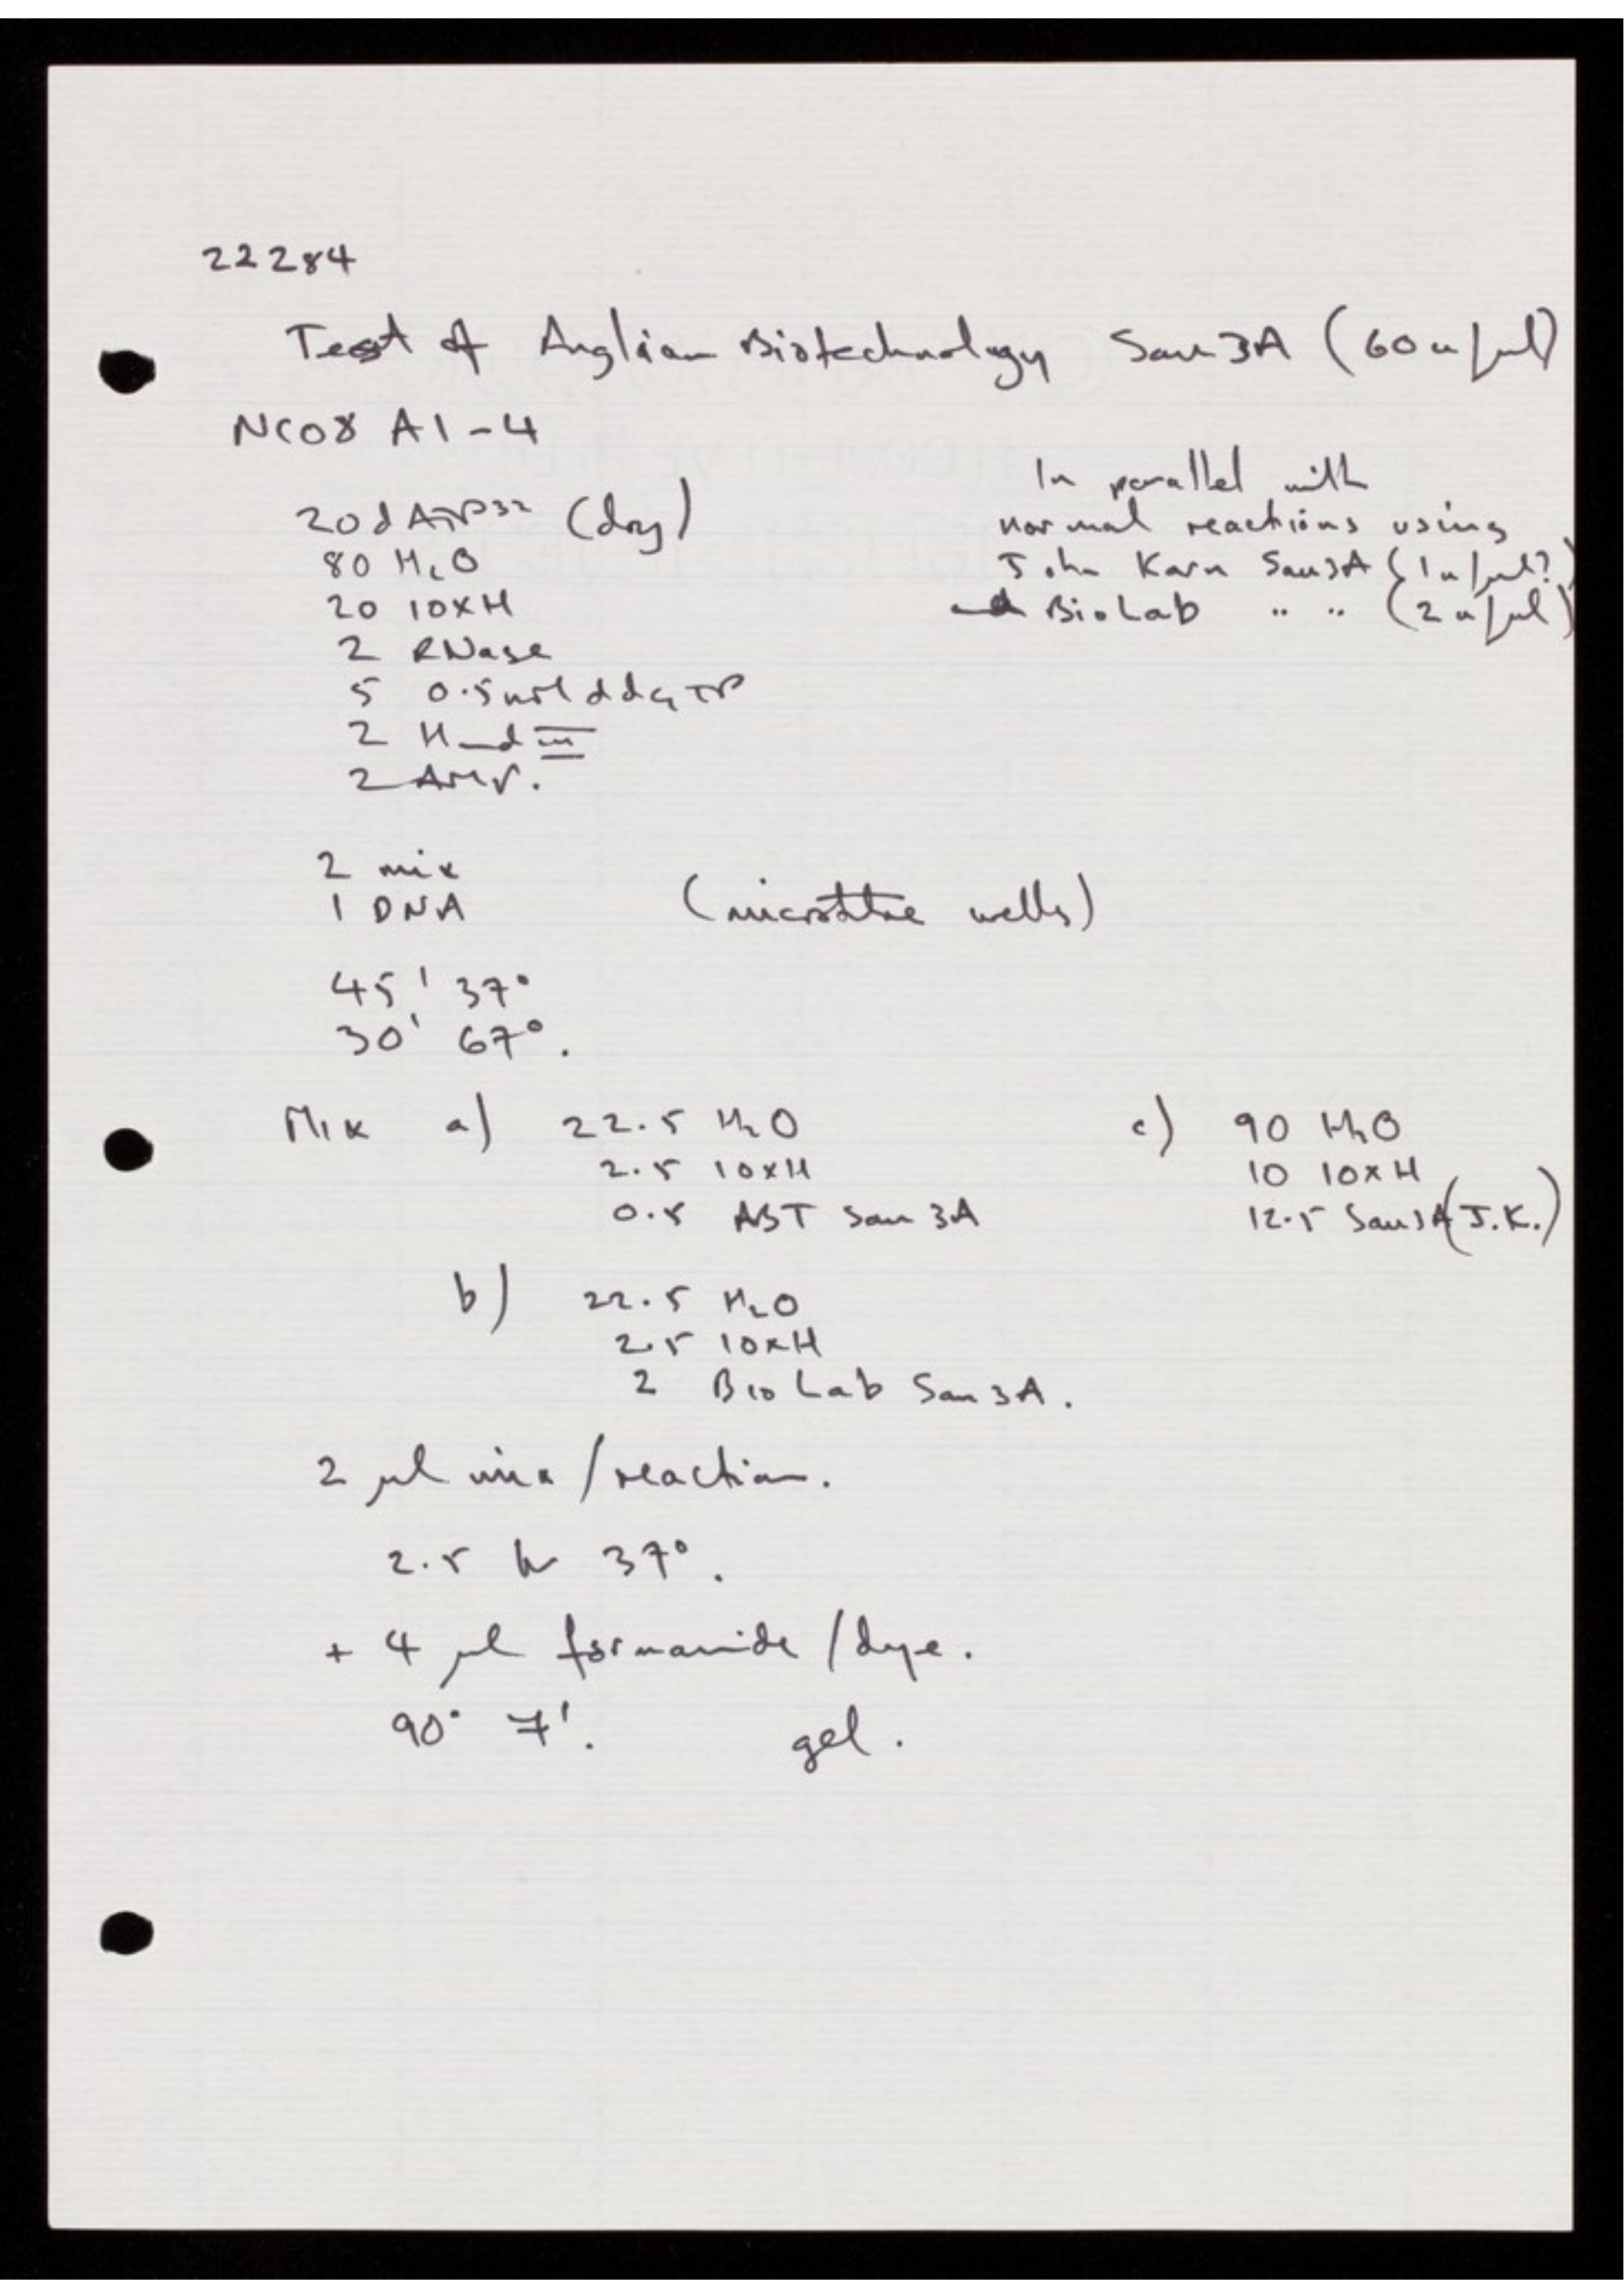 22284
Test of Anglian Biotechnology Sau3A (60 u/µl)
NC08 A1-4
In parallel with
normal reactions using
John Karn Sau3A (1u/µl?)
and BioLab " " (2u/µl)
20 dATP32 (dry)
80 H2O
20 10xH
2 RNase
5 0.5 ddGTP
2 Hind III
2 AMV.
2 mix
1 DNA (microtitre wells)
45' 37°
30' 67°.
Mix a) 22.5 H2O
2.5 10xH
0.5 ABT Sau3A
c) 90 H2O
10 10xH
12.5 Sau3A (J.K.)
b) 22.5 H2O
2.5 10xH
2 BioLab Sau3A.
2 µl mix/reaction.
2.5 hr 37°.
+ 4 µl formamide/dye.
90° 7'. gel.